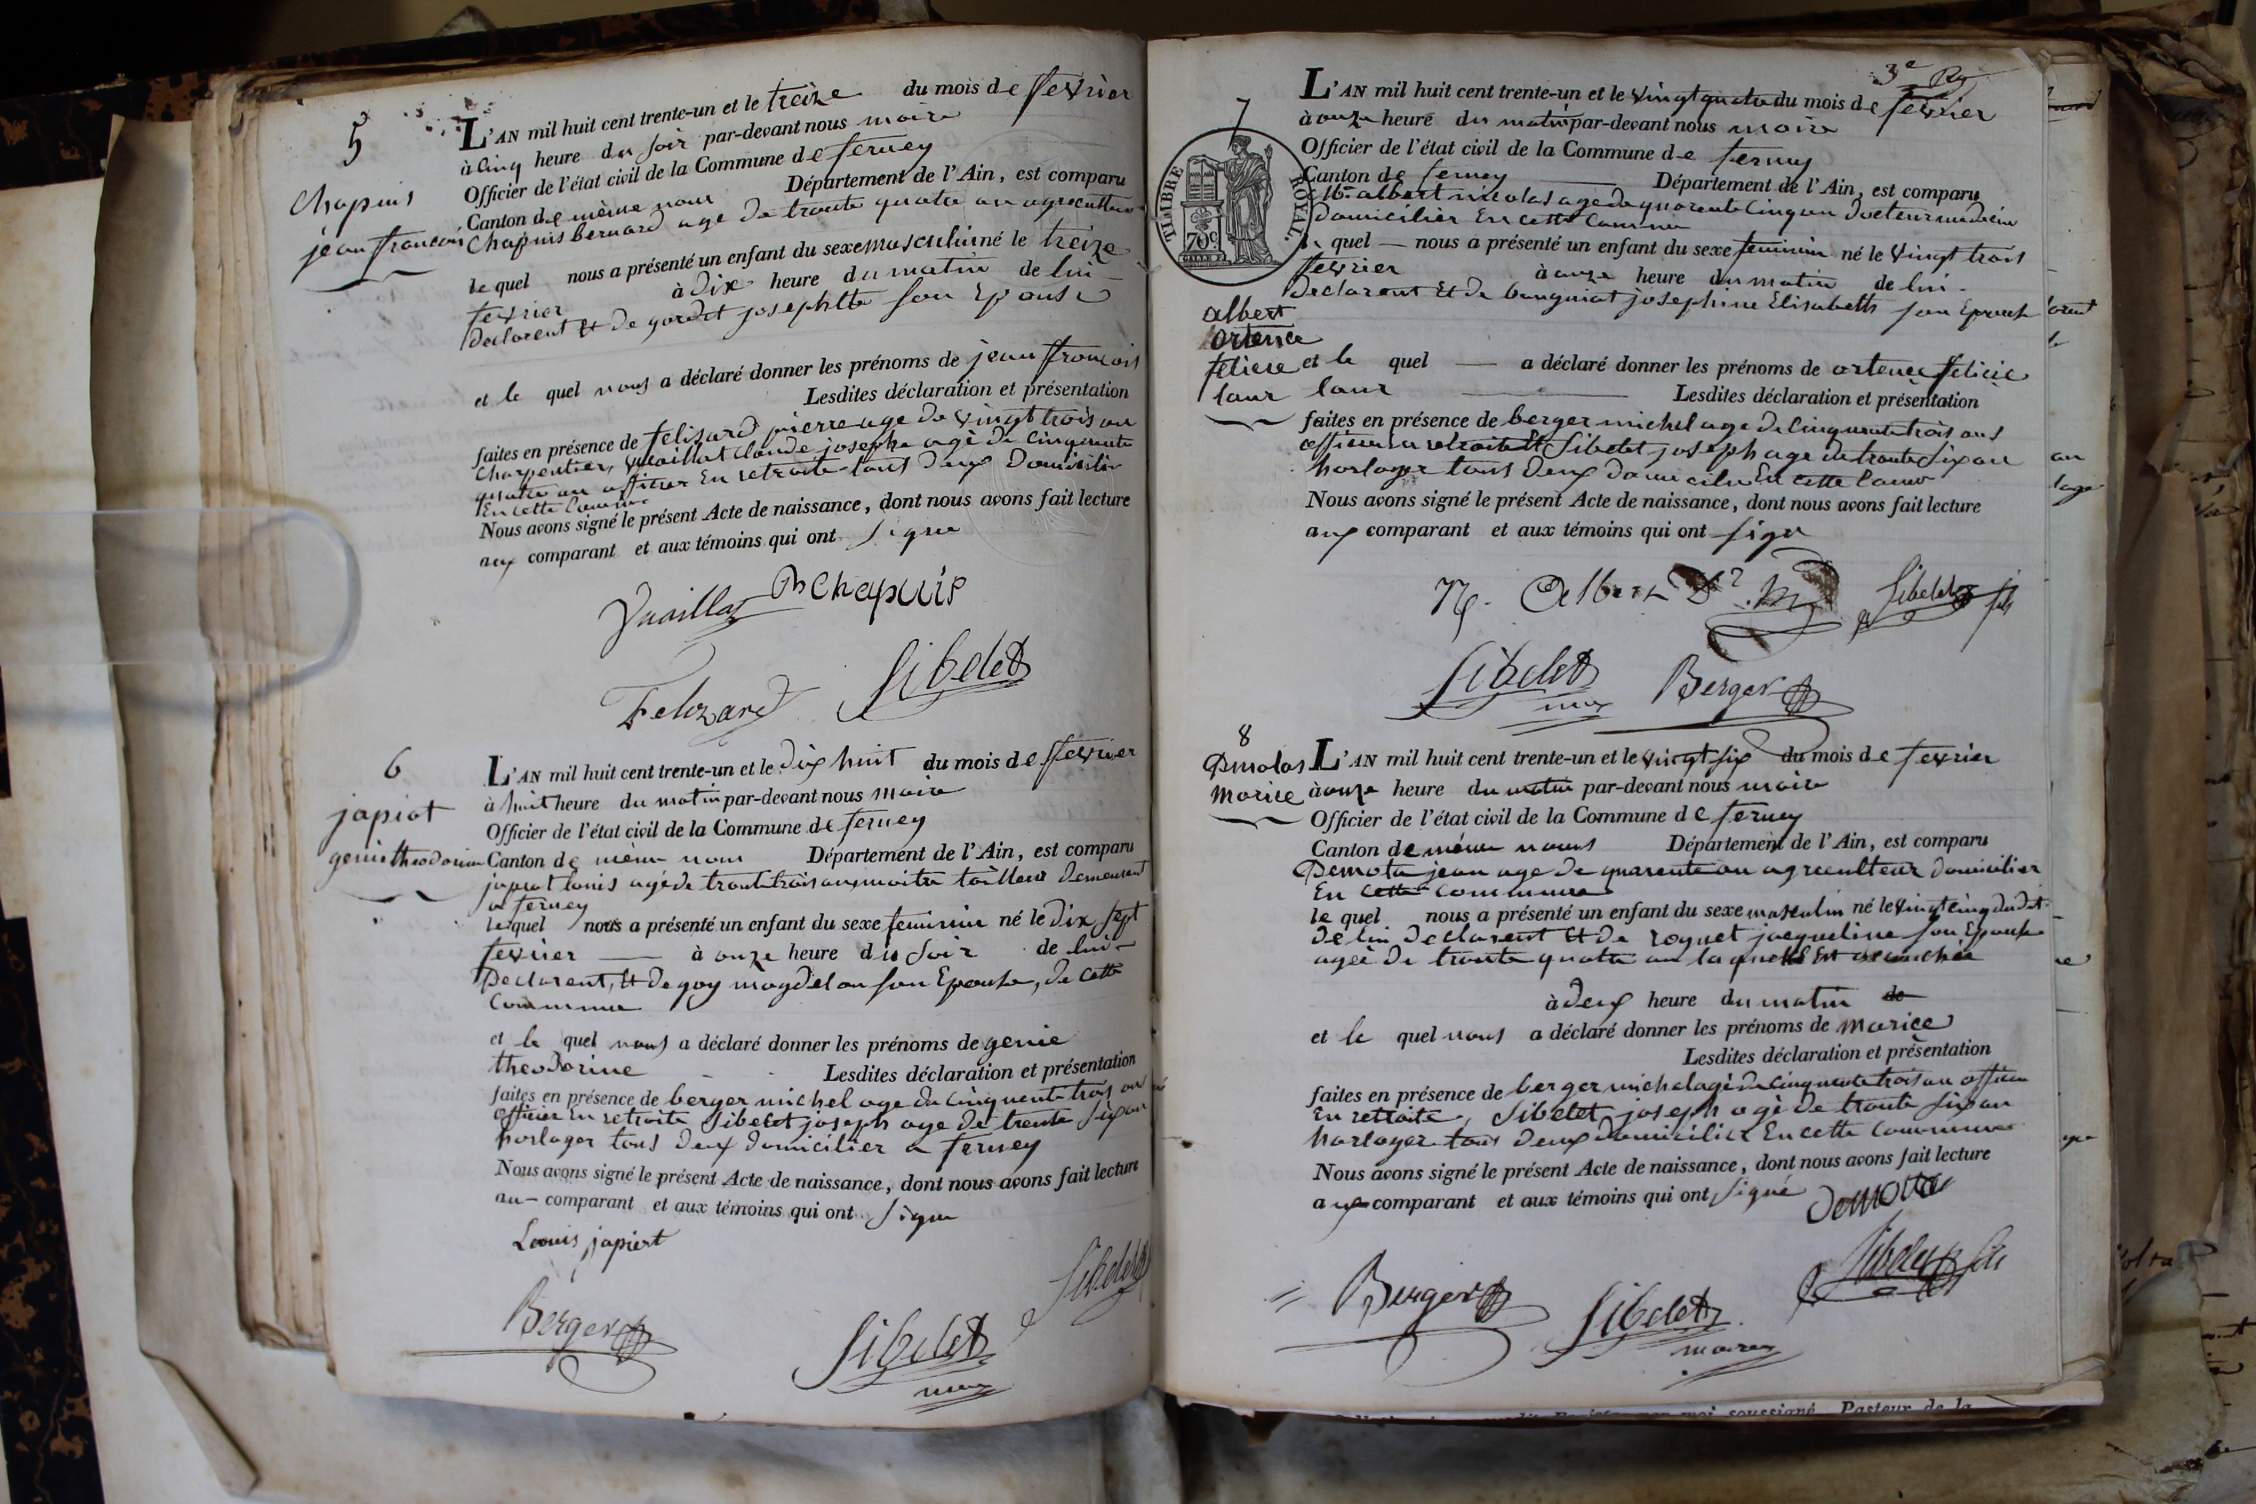 5
Chapuis
jean francois
L'AN mil huit cent trente-un et le treize du mois de fevrier
à cinq heure du soir par-devant nous maire
Officier de l'état civil de la Commune de ferney
Canton de mème nom Département de l'Ain, est comparu
Chapuis bernard age de trente quatre an agreculteur
le quel nous a présenté un enfant du sexe masculin né le treize
fevrier à dix heure du matin de lui
declarent et de gordet josephtte son Epouse
et le quel nous a déclaré donner les prénoms de jean francois
Lesdites déclaration et présentation
faites en présence de felisard pierre age de vingt trois an
Charpentier, vuaillat Claude joseph agè de Cinquante
quatre an officier En retraite tous deux Domicilier
En cette Commune
Nous avons signé le présent Acte de naissance, dont nous avons fait lecture
aux comparant et aux témoins qui ont signe
Vuaillat B Chapuis
Felizard Sibelet
6
japiot
genie theodorine
L'AN mil huit cent trente-un et le dix huit du mois de fevrier
à huit heure du matin par-devant nous maire
Officier de l'état civil de la Commune de ferney
Canton de mème nom Département de l'Ain, est comparu
japiot louis agé de trente trois ans maitre tailleur demeurent
a ferney
le quel nous a présenté un enfant du sexe feminin né le dix sept
fevrier à onze heure du soir de lui
Declarent, et de goy magdelon son Epouse, de cette
Commune
et le quel nous a déclaré donner les prénoms de genie
theodorine Lesdites déclaration et présentation
faites en présence de berger michel age de cinquente trois an
officier En retraite Sibelet joseph age de trente six an
horloger tous deux domicilier a ferney
Nous avons signé le présent Acte de naissance, dont nous avons fait lecture
au comparant et aux témoins qui ont signe
Louis japiot
Berger Sibelet Sibelet
maire
3e
7
TIMBRE ROYAL.
70c
L'AN mil huit cent trente-un et le vingt quatre du mois de fevrier
à onze heure du matin par-devant nous maire
Officier de l'état civil de la Commune de ferney
Canton de ferney Département de l'Ain, est comparu
Mr albert nicolas age de quarente Cinq an docteur medecin
domicilier En cette Commune
le quel nous a présenté un enfant du sexe feminin né le vingt trois
fevrier à onze heure du matin de lui
declarent et de josephine Elisabeth son Epouse
albert
ortence
felicie
laur
et le quel a déclaré donner les prénoms de ortence felicie
laur Lesdites déclaration et présentation
faites en présence de berger michel age de Cinquante trois ans
officier en retraite et Sibelet joseph age de trente six an
horloger tous deux domicilier En cette Comm
Nous avons signé le présent Acte de naissance, dont nous avons fait lecture
aux comparant et aux témoins qui ont signe
N. Albert Dr M Sibelet fils
Sibelet Berger
maire
8
Demolas
Morice
L'AN mil huit cent trente-un et le vingt six du mois de fevrier
à onze heure du matin par-devant nous maire
Officier de l'état civil de la Commune de ferney
Canton de mème noms Département de l'Ain, est comparu
Demola jean age de quarente an agreculteur domicilier
En cette Commune
le quel nous a présenté un enfant du sexe masculin né le vingt cinq dudit
de lui declarent et de roguet jacqueline son Epouse
agèe de trente quatre an laquelle est acouchèe
à deux heure du matin de
et le quel nous a déclaré donner les prénoms de morice
Lesdites déclaration et présentation
faites en présence de berger michel agè de Cinquente trois an officier
En retraite, Sibelet joseph agè de trente six an
horloger tous deux domicilier En cette Commune
Nous avons signé le présent Acte de naissance, dont nous avons fait lecture
aux comparant et aux témoins qui ont signé Demola
Berger Sibelet Sibelet fils
maire
moi soussigné, Pasteur de la